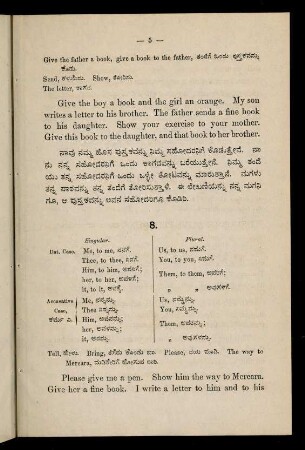 — 5 —
Give the father a book, give a book to the father, ತಂದೆಗೆ ಒಂದು ಪುಸ್ತಕವನ್ನು
ಕೊಡು.
Send, ಕಳುಹಿಸು. Show, ತೋರಿಸು.
The letter, ಕಾಗದ.
Give the boy a book and the girl an orange. My son
writes a letter to his brother. The father sends a fine book
to his daughter. Show your exercise to your mother.
Give this book to the daughter, and that book to her brother.
ನಾವು ನಮ್ಮ ಹೊಸ ಪುಸ್ತಕವನ್ನು ನಿಮ್ಮ ಸಹೋದರನಿಗೆ ಕೊಡುತ್ತೇವೆ. ನಾ
ನು ನನ್ನ ಸಹೋದರನಿಗೆ ಒಂದು ಕಾಗದವನ್ನು ಬರೆಯುತ್ತೇನೆ. ನಿಮ್ಮ ತಂದೆ
ಯು ತನ್ನ ಸಹೋದರನಿಗೆ ಒಂದು ಒಳ್ಳೇ ತೋಟವನ್ನು ಮಾರುತ್ತಾನೆ. ಮಗಳು
ತನ್ನ ಪಾಠವನ್ನು ತನ್ನ ತಂದೆಗೆ ತೋರಿಸುತ್ತಾಳೆ. ಈ ಲೇಖಣಿಯನ್ನು ನನ್ನ ಮಗನಿ
ಗೂ, ಆ ಪುಸ್ತಕವನ್ನು ಅವನ ಸಹೋದರನಿಗೂ ಕೊಡಿರಿ.
8.
Singular. Plural.
Dat. Case. Me, to me, ನನಗೆ. Us, to us, ನಮಗೆ.
Thee, to thee, ನಿನಗೆ. You, to you, ನಿಮಗೆ.
Him, to him, ಅವನಿಗೆ; Them, to them, ಅವರಿಗೆ;
her, to her, ಅವಳಿಗೆ;
it, to it, ಅದಕ್ಕೆ. „ „ ಅವುಗಳಿಗೆ.
Accusative Me, ನನ್ನನ್ನು. Us, ನಮ್ಮನ್ನು.
Case, Thee ನಿನ್ನನ್ನು. You, ನಿಮ್ಮನ್ನು.
ಕರ್ಮ ವಿ. Him, ಅವನನ್ನು; Them, ಅವರನ್ನು;
her, ಅವಳನ್ನು;
it, ಅದನ್ನು. „ ಅವುಗಳನ್ನು.
Tell, ಹೇಳು. Bring, ತೆಗೆದು ಕೊಂಡು ಬಾ. Please, ದಯ ಮಾಡಿ. The way to
Mercara, ಮಡಿಕೇರಿಗೆ ಹೋಗುವ ದಾರಿ.
Please give me a pen. Show him the way to Mercara.
Give her a fine book. I write a letter to him and to his